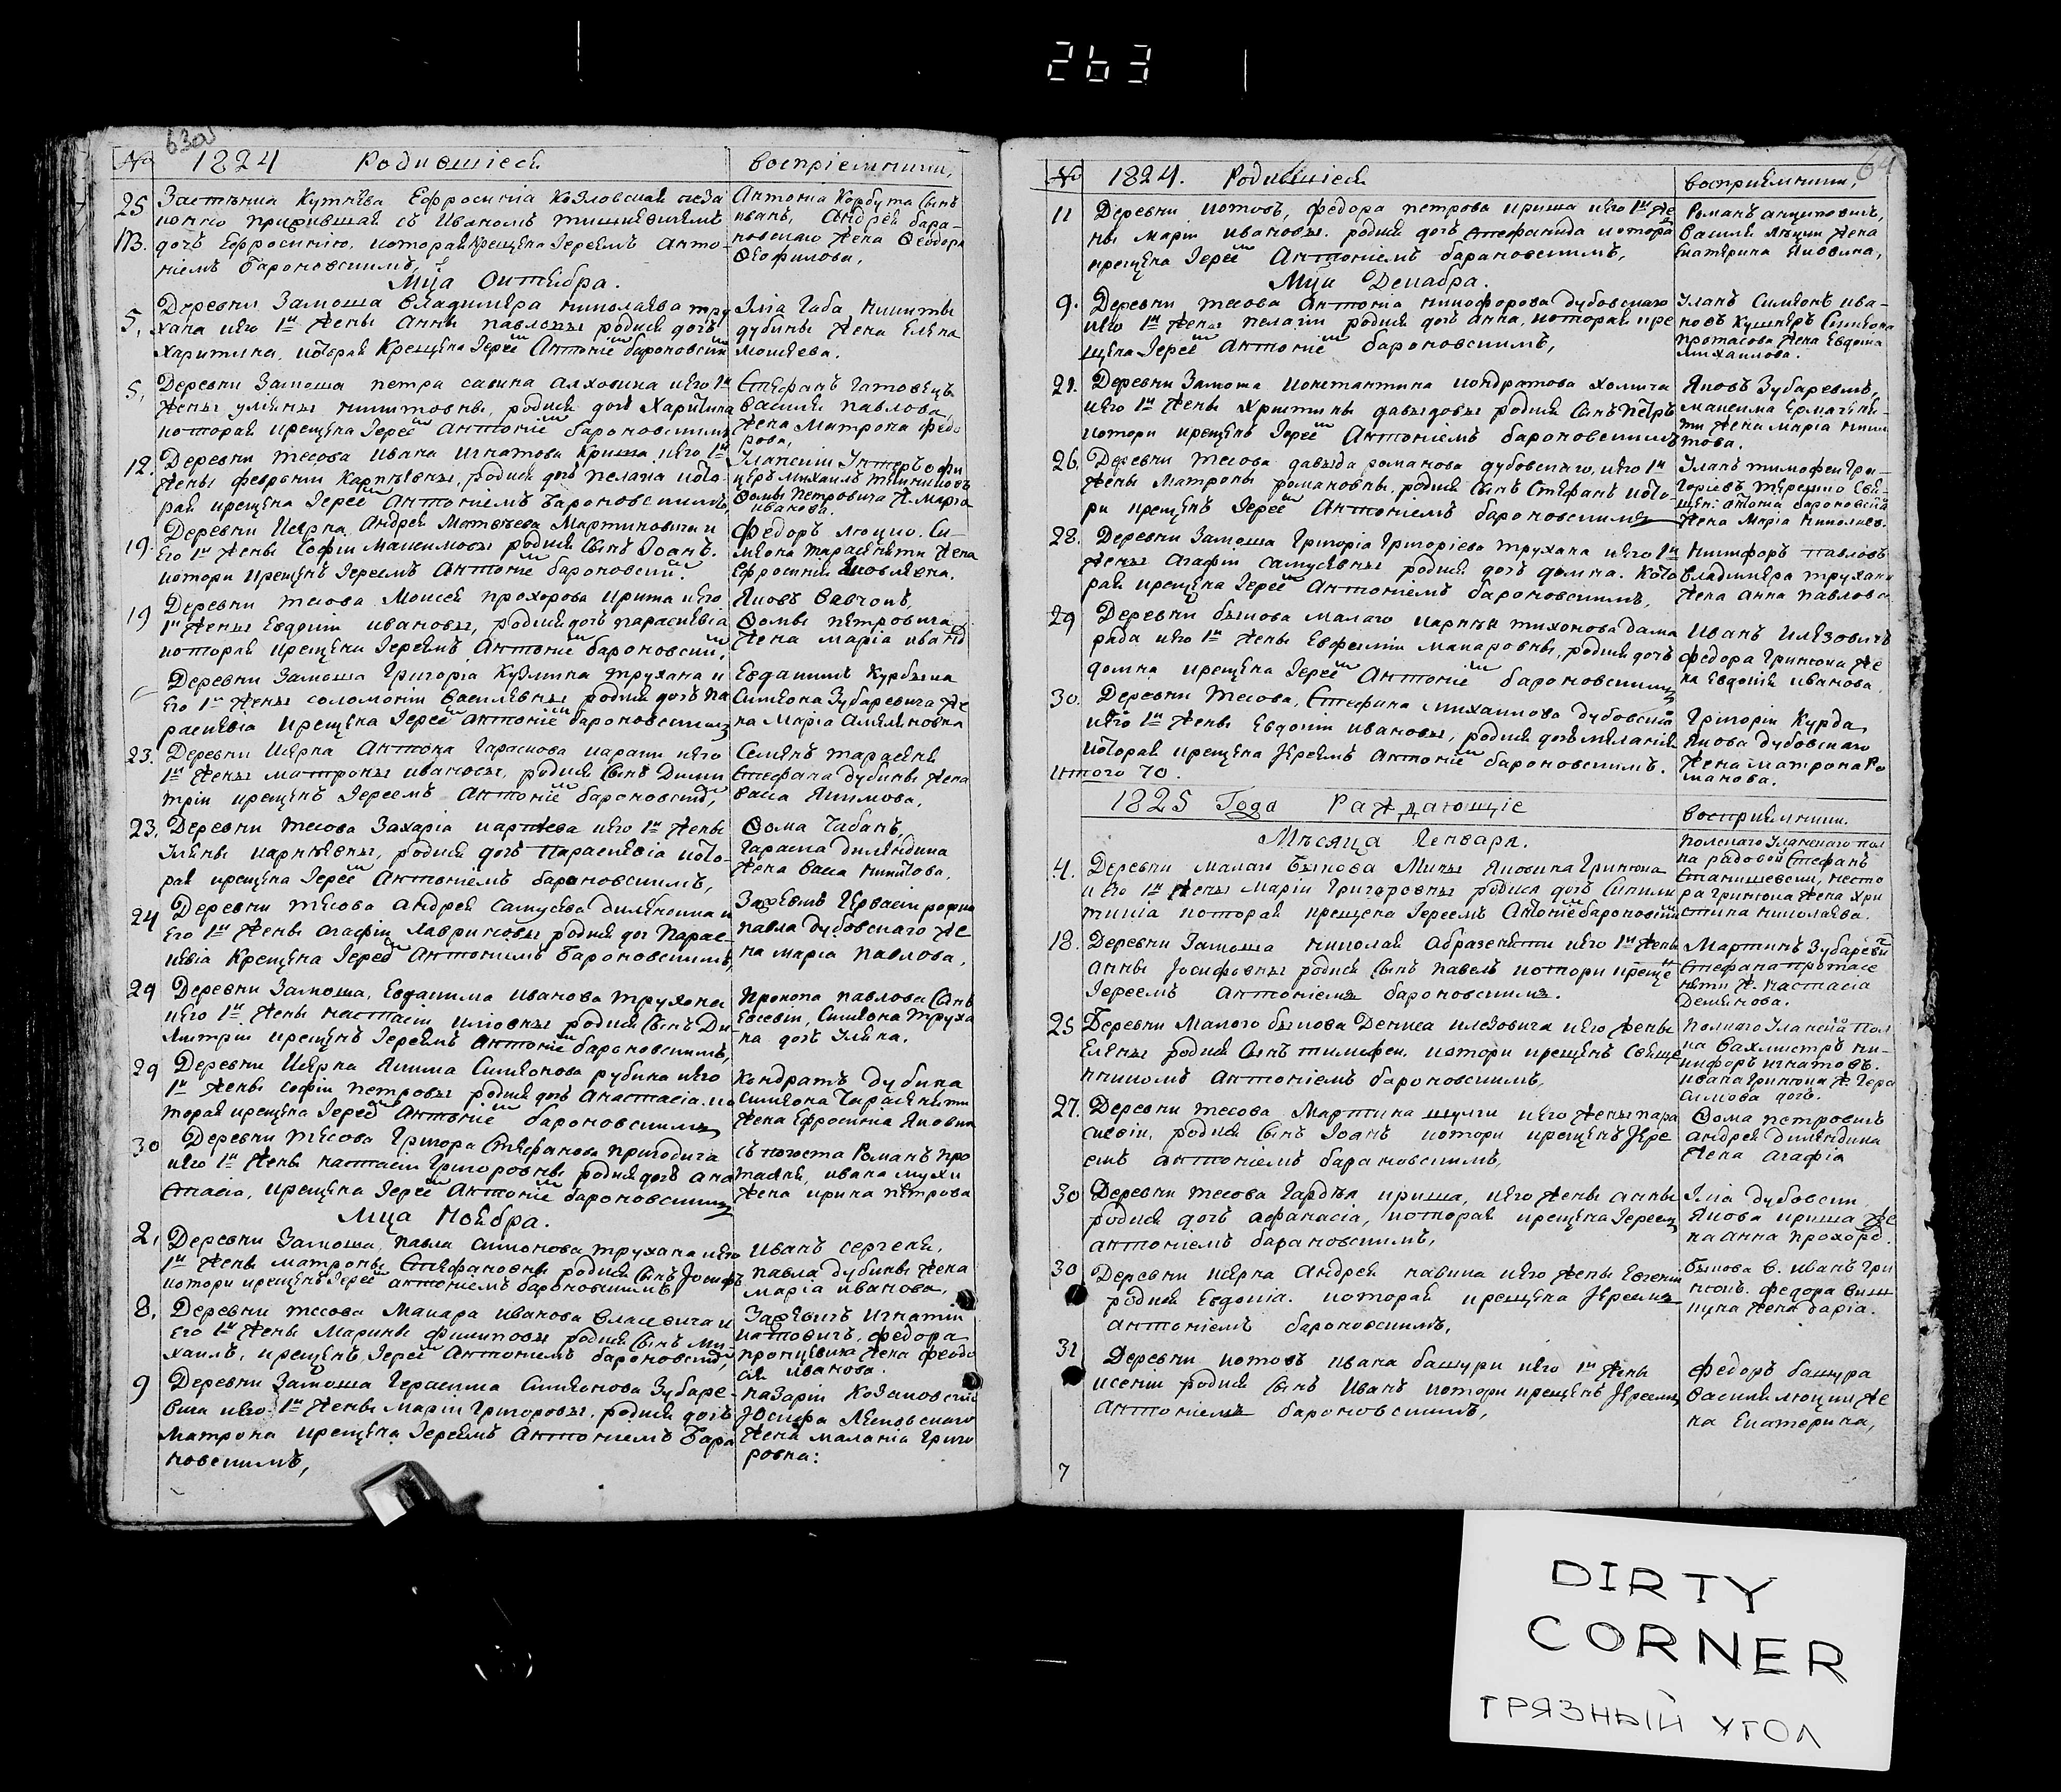 263
63об
№ 1824 Родившіеся
воспріемники,
25 Застенка Кутнева Ефросиніа Козловская неза
конно прижившая съ Иваномъ
дочь Ефросинію, которая крещена Іереемъ Анто-
ніемъ Бароновскимъ,
Антона Корбута сынъ
иванъ, Андрея бара-
новскаго жена Ѳеодора
Ѳеофилова,
Мца Октября.
5, Деревни Замоша Владимера николаева тру
хана и его 1й жены Анны павловы родися дочь
Харитина, которая Крещена Іерее Антоніе бароновским
Иліа Габа никиты
дубины жена Елена
Мосеева.
5, Деревни Замоша петра савина Алховика и его 1й
жены улияны никитовны, родися дочь Харитина
которая крещена Іерее Антоніе бароновскимъ
Стефанъ Гатовецъ
Василя павлова,
жена Матрона федо
рова,
12. Деревни тесова Ивана Игнатова Криша и его 1й
жены февроніи Карпѣевны, родися дочь пелагіа кото
рая крещена Іерее Антоніемъ Бароновскимъ
церъ Михаилъ
Ѳомы Петровича ж. Маріа
иванова.
19. Деревни Икярка Андрея Матвѣева Мартиновича и
его 1й жены Софіи Максимовы родися сынъ Іоанъ.
котори крещенъ Іереемъ Антоніе бароновский.
Федоръ люцко. Си-
меона тарасевити жена
Ефросиніа Яковлевна.
19 Деревни тесова Моисея прохорова криша и его
1й жены Евдокіи ивановы, родися дочь параскевіа
которая крещени Іереемъ Антоніе бароновский,
Яковъ Савчонъ,
Ѳомы петровича
жена маріа иванова
Деревни Замоша Григоріа Кузмина трухана и
его 1й жены соломоніи василевны родися дочь па
раскевіа крещена Іерее Антоніе бароновскимъ
Евдакимъ Курбыка
Симеона Зубаревича же
на Маріа Амеляновна
23. Деревни Икярка Антона Гарасмова карати и его
1й жены матроны ивановы, родися сынъ Дими
трій крещенъ Іереемъ Антоніе бароновски,
Семенъ тарасени
Стефана дубины жена
Васа Якимова,
23. Деревни тесова Захаріа карпѣева и его 1й жены
Уляны карпѣевны, родися дочь параскевіа кото-
рая крещена Іерее Антоніемъ барановскимъ,
Ѳома Чабанъ,
Гарасма дилендика
жена Васа никитова,
24 Деревни тесова Андрея Самусева дилендика и
его 1й жены агафіи лавриновы родися доч Парас-
кевіа Крещена Іерее Антоніемъ Бароновскимъ,
павла дубовскаго же
на маріа павлова,
29 Деревни Замоша, Евдакима иванова трухона
и его 1й жены настасіи родися сынъ Ди-
митрій крещенъ Іереемъ Антоніе бароновскимъ,
Прокопа павлова сынъ
Евсевій, Симеона труха
на дочь Уляна.
29 Деревни Икярка Якима Симеонова рубина и его
1й жены софіи петровы родися дочь анастасіа. ко
торая крещена Іерее Антоніе бароновскимъ
Кондратъ дубина
симеона Тарасевити
жена Ефросиніа Яковна
30 Деревни тесова Григора Стефанова пригодича
и его 1й жены настасіи Григоровны родися дочь ана
стасіа, крещена Іерее Антоніе бароновскимъ
съ погоста Романъ про
тасеня, ивана мухи
жена ирина петрова
Мца Ноября.
2, Деревни Замоша павла симонова трухана и его
1й жены матроны Стефановны родися сынъ Іосифъ
котори крещенъ Іерее антоніемъ бароновскимъ
Иванъ сергеня,
павла дубины жена
маріа иванова,
8, Деревни тесова Макара иванова Власевича и
его 1й жены Марины Филиповы родися сынъ Ми-
хаилъ, крещенъ Іерее Антоніемъ бароновски,
Игнатій
федора
жена феодо
ся иванова.
9 Деревни Замоша Герасима Симеонова Зубаре-
вича и его 1й жены Маріи Григоровы, родися дочь
Матрона крещена Іереемъ Антоніемъ Бара
новскимъ,
назарій Козановский
Іосифа Ляховскаго
жена маланіа Григо
ровна:
64
№ 1824. Родившіеся
воспріемники,
11 Деревни Котовъ, федора петрова криша и его 1й же
ны Маріи ивановы. родися дочь Стефанида котора
крещена Іерее Антоніемъ барановскимъ,
Романъ анциповичъ,
Василя люцки жена
Екатерина Яковина,
Мца Декабра.
9. Деревни тесова антона никифорова дубовскаго
и его 1й жены пелагіи родися дочь анна, которая кре
щена Іерее Антоніе бароновскимъ,
Уланъ Симеонъ ива-
новъ Кушнеръ Симеона
протасова жена Евдокіа
михаилова.
21. Деревни Замоша Константина кондратова холмича
и его 1й жены Христины давыдовы родися сынъ петръ
котори крещенъ Іерее Антоніемъ бароновскимъ
Яковъ Зубаревичъ,
максима Ермачени-
ти жена маріа ники
това.
26. Деревни тесова давыда романова дубовскаго, и его 1й
жены Матроны романовны, родися сынъ Стефанъ кото-
ри крещенъ Іерее Антоніемъ бароновскимъ
Уланъ тимофеи Гри-
горіевъ терешко Свя-
щен: антона бароновски
жена маріа николаев.
28. Деревни Замоша Григоріа Григоріева трухана и его 1й
жены Агафіи самусевны родися дочь домна. кото
рая крещена Іерее Антоніемъ бароновскимъ,
никифоръ павловъ
Владимера трухана
жена анна павлова
29 Деревни быкова малаго карнея тихонова дама
рада и его 1й жены Евфеміи макаровны, родися дочь
домна крещена Іерее Антоніе бароновскимъ
Иванъ илезовичъ
федора Гринкона же
на Евдокія иванова.
30. Деревни тесова, Стефана михаилова дубовска
и его 1й жены Евдокіи ивановы, родися дочь меланія
которая крещена Іереемъ Антоніе бароновскимъ.
Григорій Курда
Якова дубовскаго
жена матрона ро
манова.
Итого 70.
1825 Года Раждающіе
воспріемники.
Мѣсяца Генваря.
4. Деревни малаго Быкова Мины Яковина Гринкона
и его 1й жены маріи Григоровны родися дочь Синкли
тикіа которая крещена Іереемъ Антоніе бароновским
полскаго уланскаго пол
ка радовой Стефанъ
Станишевски, несто
ра Гринкона жена хри
стина николаева.
18. Деревни Замоша николая Абразенити и его 1й жены
анны Іосифовны родися сынъ павелъ котори креще
Іереемъ Антоніемъ бароновскимъ.
Мартинъ Зубареви
Стефана протасе
нети ж. настасіа
Демянова.
25 Деревни Малого быкова Дениса илезовича и его жены
Елены родися сынъ тимофеи. котори крещенъ Свяще
нникомъ антоніемъ бароновскимъ,
полнаго уланска пол
ка Вахмистръ ни-
кифоръ игнатовъ.
ивана Гринкона ж. Гера
симова дочь.
27. Деревни тесова Мартина шулги и его жены пара
скевіи, родися сынъ Іоанъ котори крещенъ Іере
емъ антоніемъ барановскимъ,
Ѳома петровичъ
андрея дилендика
жена агафіа
30 Деревни тесова Гардѣя криша, и его жены анны
родися дочь афанасіа, которая крещена Іереемъ
антоніемъ барановскимъ,
Иліа дубовски
Якова криша же
на анна прохоро.
30 Деревни икярка Андрея савича и его жены Евгении
родися Евдокіа. которая крещена Іереемъ
антоніемъ бароновскимъ,
Быкова в. иванъ Гри
нкон. федора виш
нука жена даріа.
31 Деревни котовъ ивана башури и его 1й жены
ксении родися сынъ Иванъ котори крещенъ Іереемъ
Антоніемъ бароновскимъ,
федоръ башура
Василя люцки же
на Екатерина,
7
DIRTY
CORNER
ГРЯЗНЫЙ УГОЛ